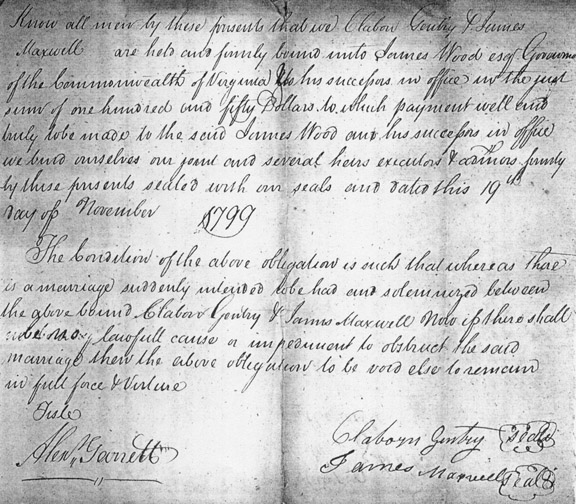 Know all men by these presents that we Claborn Gentry & James
Maxwell are held and firmly bound unto James Wood esqr. Governor
of the Commonwealth of Virginia & his successors in office in the just
sum of one hundred and fifty Dollars to which payment well and
truly to be made to the said James Wood and his successors in office
we bind ourselves our joint and several heirs executors & admors. firmly
by these presents sealed with our seals and dated this 19th
day of November 1799
The Condition of the above obligation is such that whereas there
is a marriage suddenly intended to be had and solemnized between
the above bound Claborn Gentry & James Maxwell Now if there shall
be no lawfull cause or impediment to obstruct the said
marriage then the above obligation to be void else to remain
in full force & Virtue
Teste
Alexr. Garrett
Claboyn Gentry Seal
James Maxwell Seal